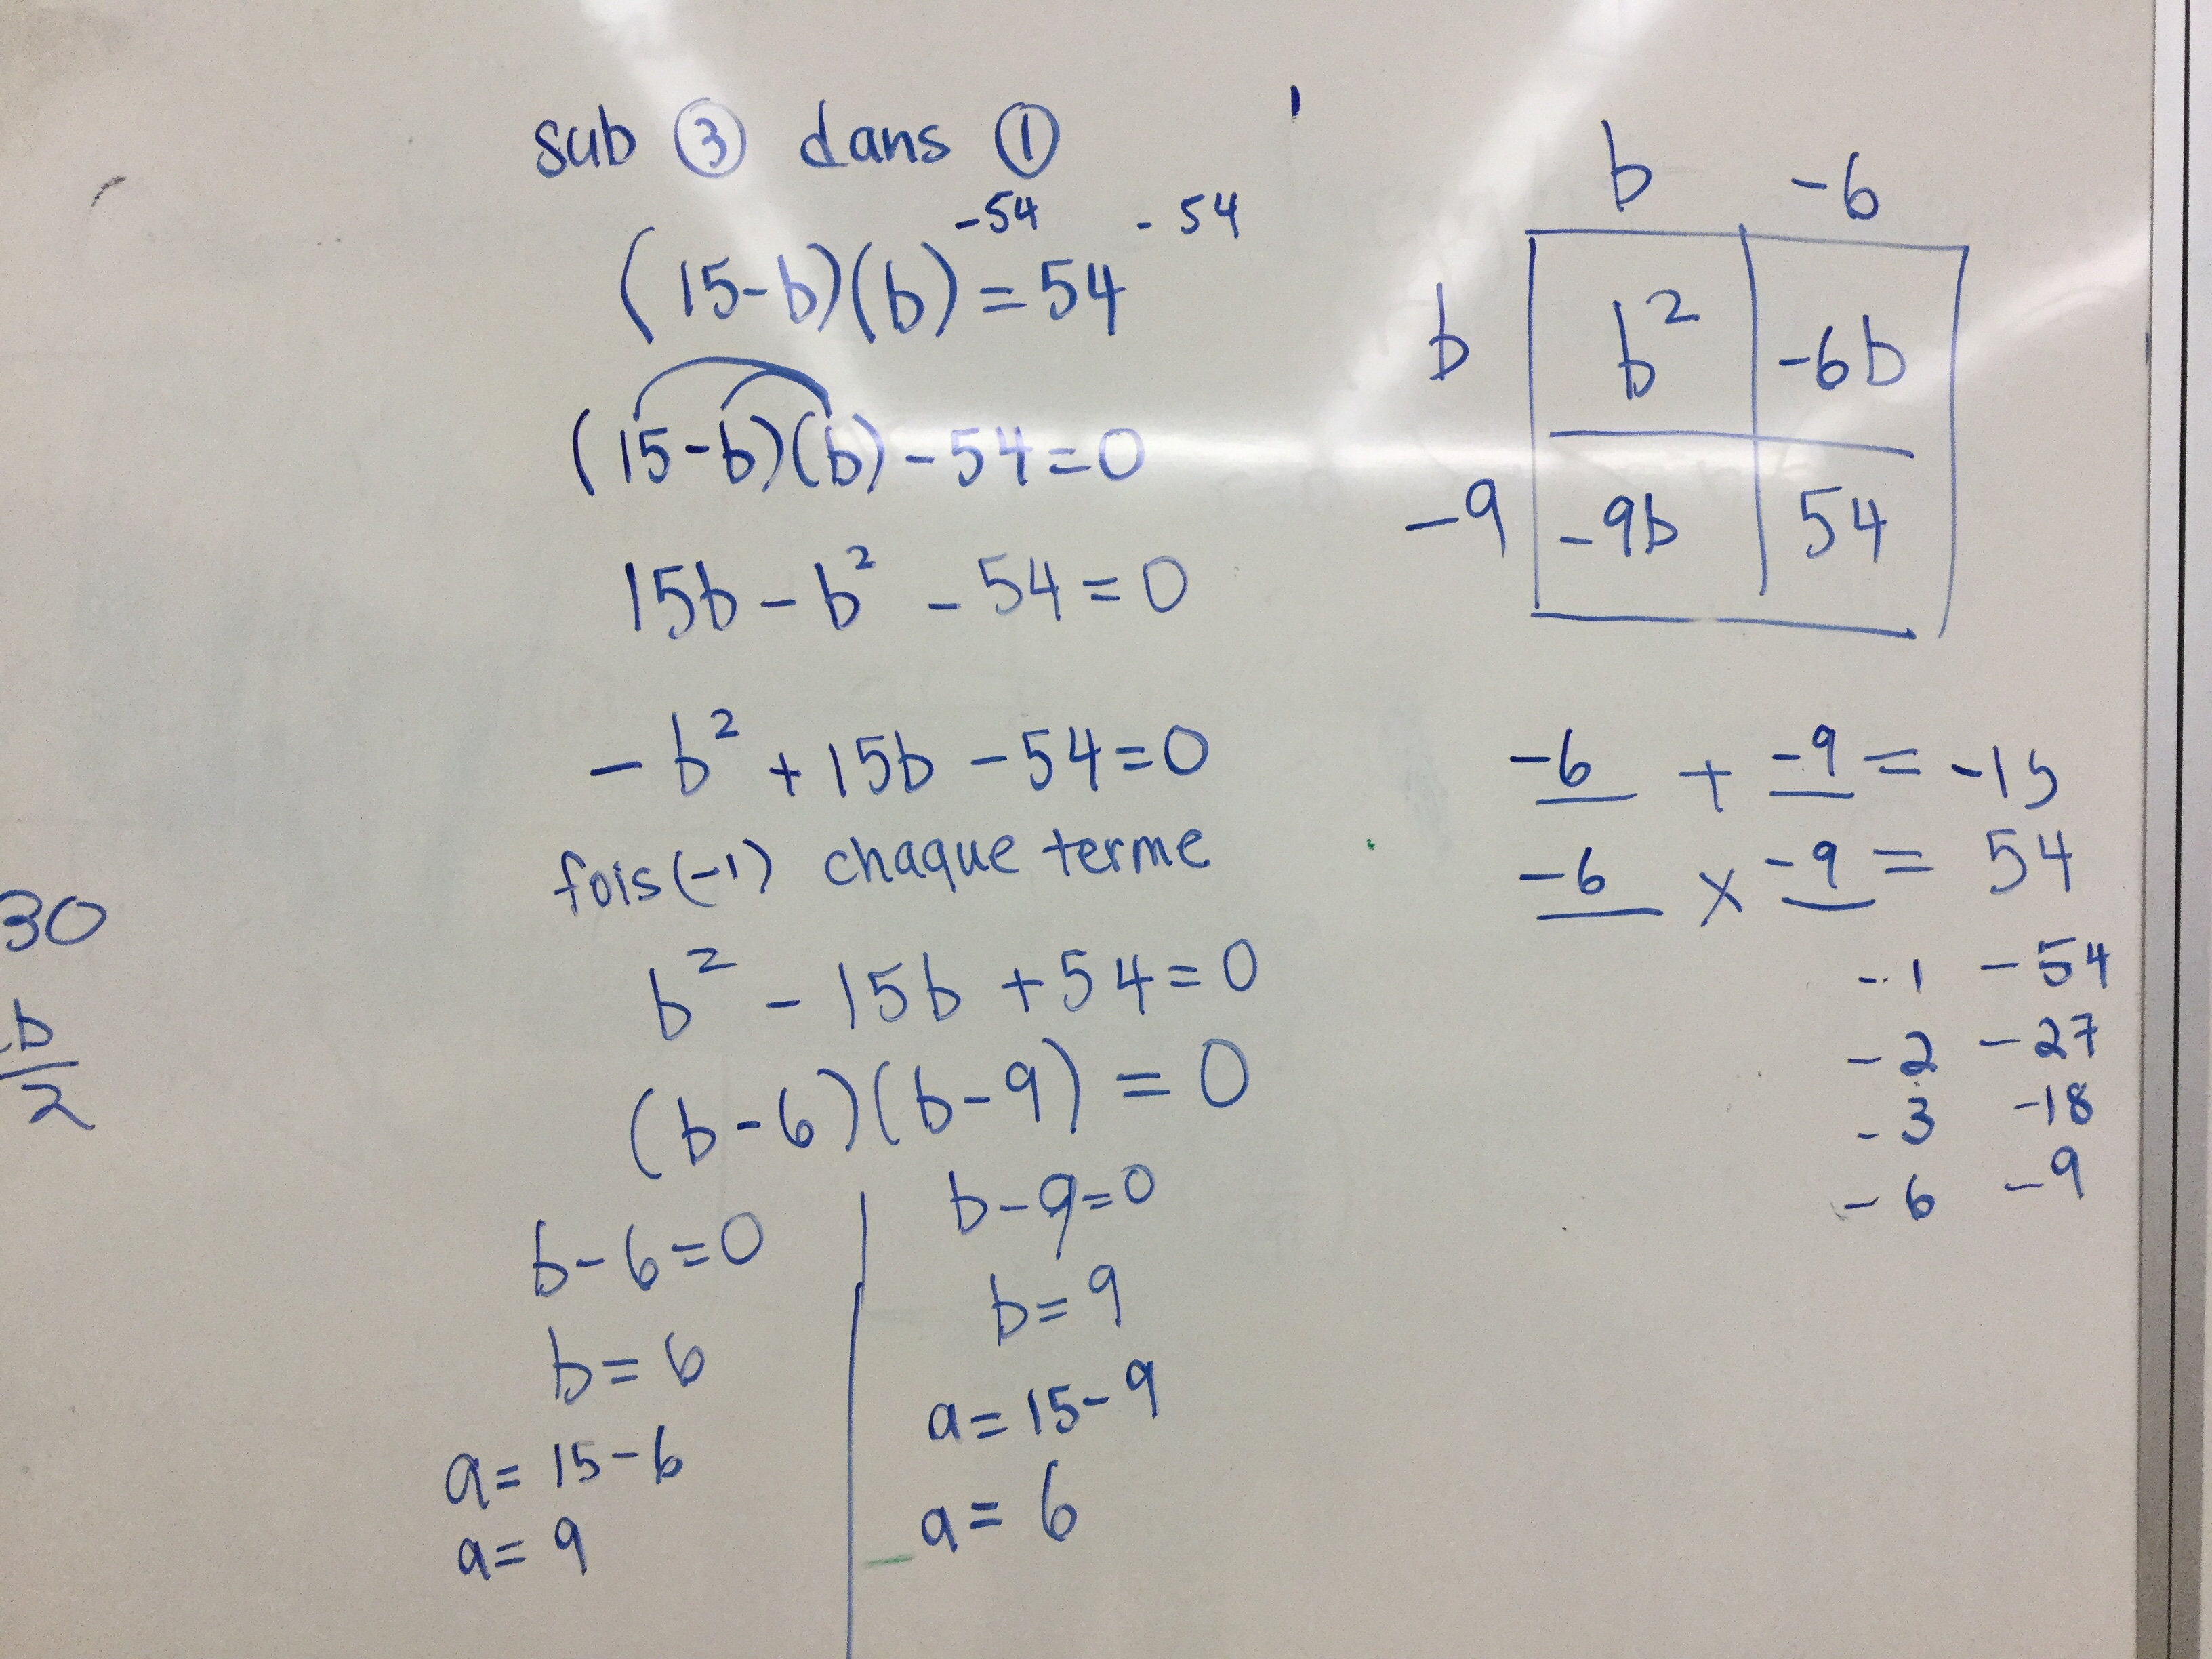 sub ③ dans ①
-54 -54
(15-b)(b) = 54
(15-b)(b) - 54 = 0
15b - b² - 54 = 0
- b² + 15b - 54 = 0
fois (-1) chaque terme
b² - 15b + 54 = 0
(b-6)(b-9) = 0
b-6=0
b=6
a= 15-6
a= 9
b-9=0
b= 9
a= 15-9
a= 6
b -6
b b² -6b
-9 -9b 54
-6 + -9 = -15
-6 x -9 = 54
-1 -54
-2 -27
-3 -18
-6 -9
30
b
2